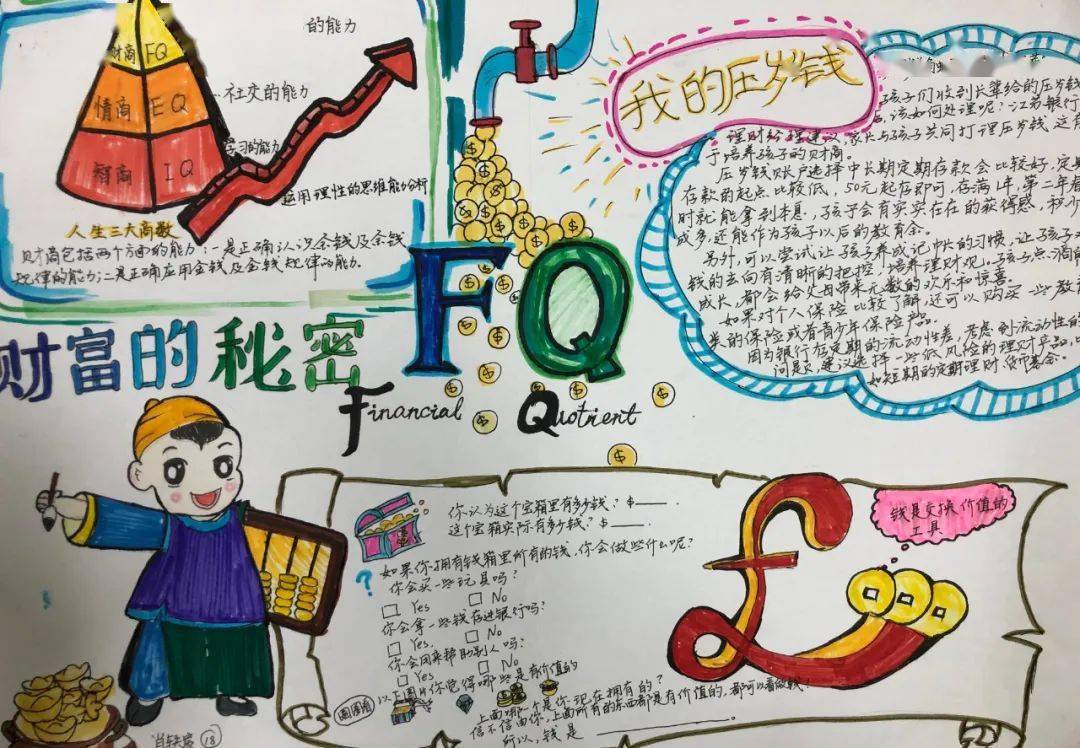 财商 FQ
情商 EQ
智商 IQ
的能力
社交的能力
学习的能力
运用理性的思维能力分析
人生三大商数
财商包括两个方面的能力:一是正确认识金钱及金钱
规律的能力;二是正确应用金钱及金钱规律的能力。
财富的秘密
FQ
Financial Quotient
我的压岁钱
孩子们收到长辈给的压岁钱
该如何处理呢?江苏银行
理财经理建议,家长与孩子共同打理压岁钱,这有
于培养孩子的财商。
压岁钱账户选择中长期定期存款会比较好,定期
存款的起点比较低,50元起存即可,存满1年,第二年看
时就能拿到本息,孩子会有实实在在的获得感,积少
成多,还能作为孩子以后的教育金。
另外,可以尝试让孩子养成记中长的习惯,让孩子对
钱的去向有清晰的把控,培养理财观。孩子点滴的
成长,都会给父母带来无数的欢乐和惊喜。
如果对个人保险比较了解,还可以购买一些教育
类的保险或者青少年保险产品。
因为银行存定期的流动性差,考虑到流动性的
问题,建议选择一些低风险的理财产品,比
如短期的定期理财、货币基金。
你认为这个宝箱里有多少钱?$____.
这个宝箱实际有多少钱?$____.
如果你拥有钱箱里所有的钱,你会做些什么呢?
?
你会买一些玩具吗?
□ Yes □ No
你会拿一些钱存进银行吗?
□ Yes, □ No
你会用来帮助别人吗?
□ Yes □ No
圈圈看
以上图片你觉得哪些是有价值的
上面哪一个是你现在拥有的?
信不信由你,上面所有的东西都是有价值的,都可以看做钱!
所以,钱是____。
钱是交换价值的
工具
18